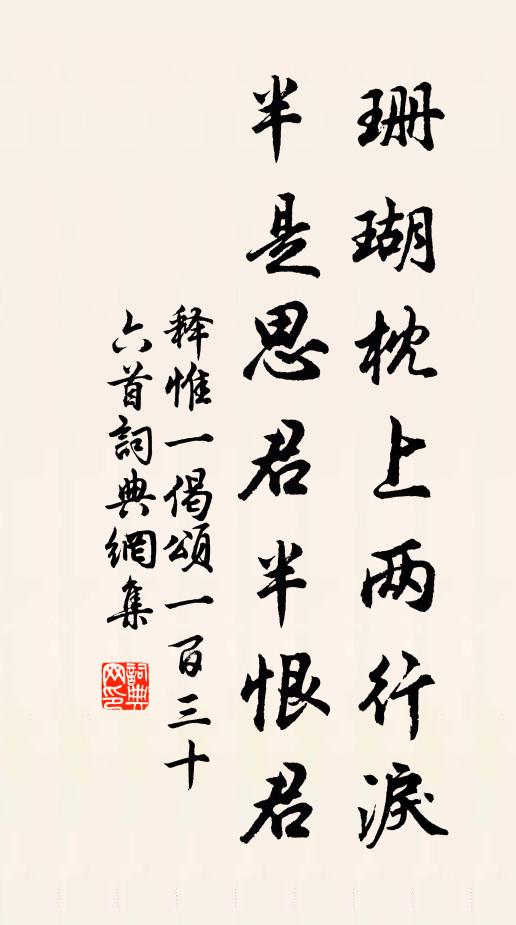 珊瑚枕上两行淚
半是思君半恨君
释惟一偈頌一百三十
六首詞典網集
詞典網印